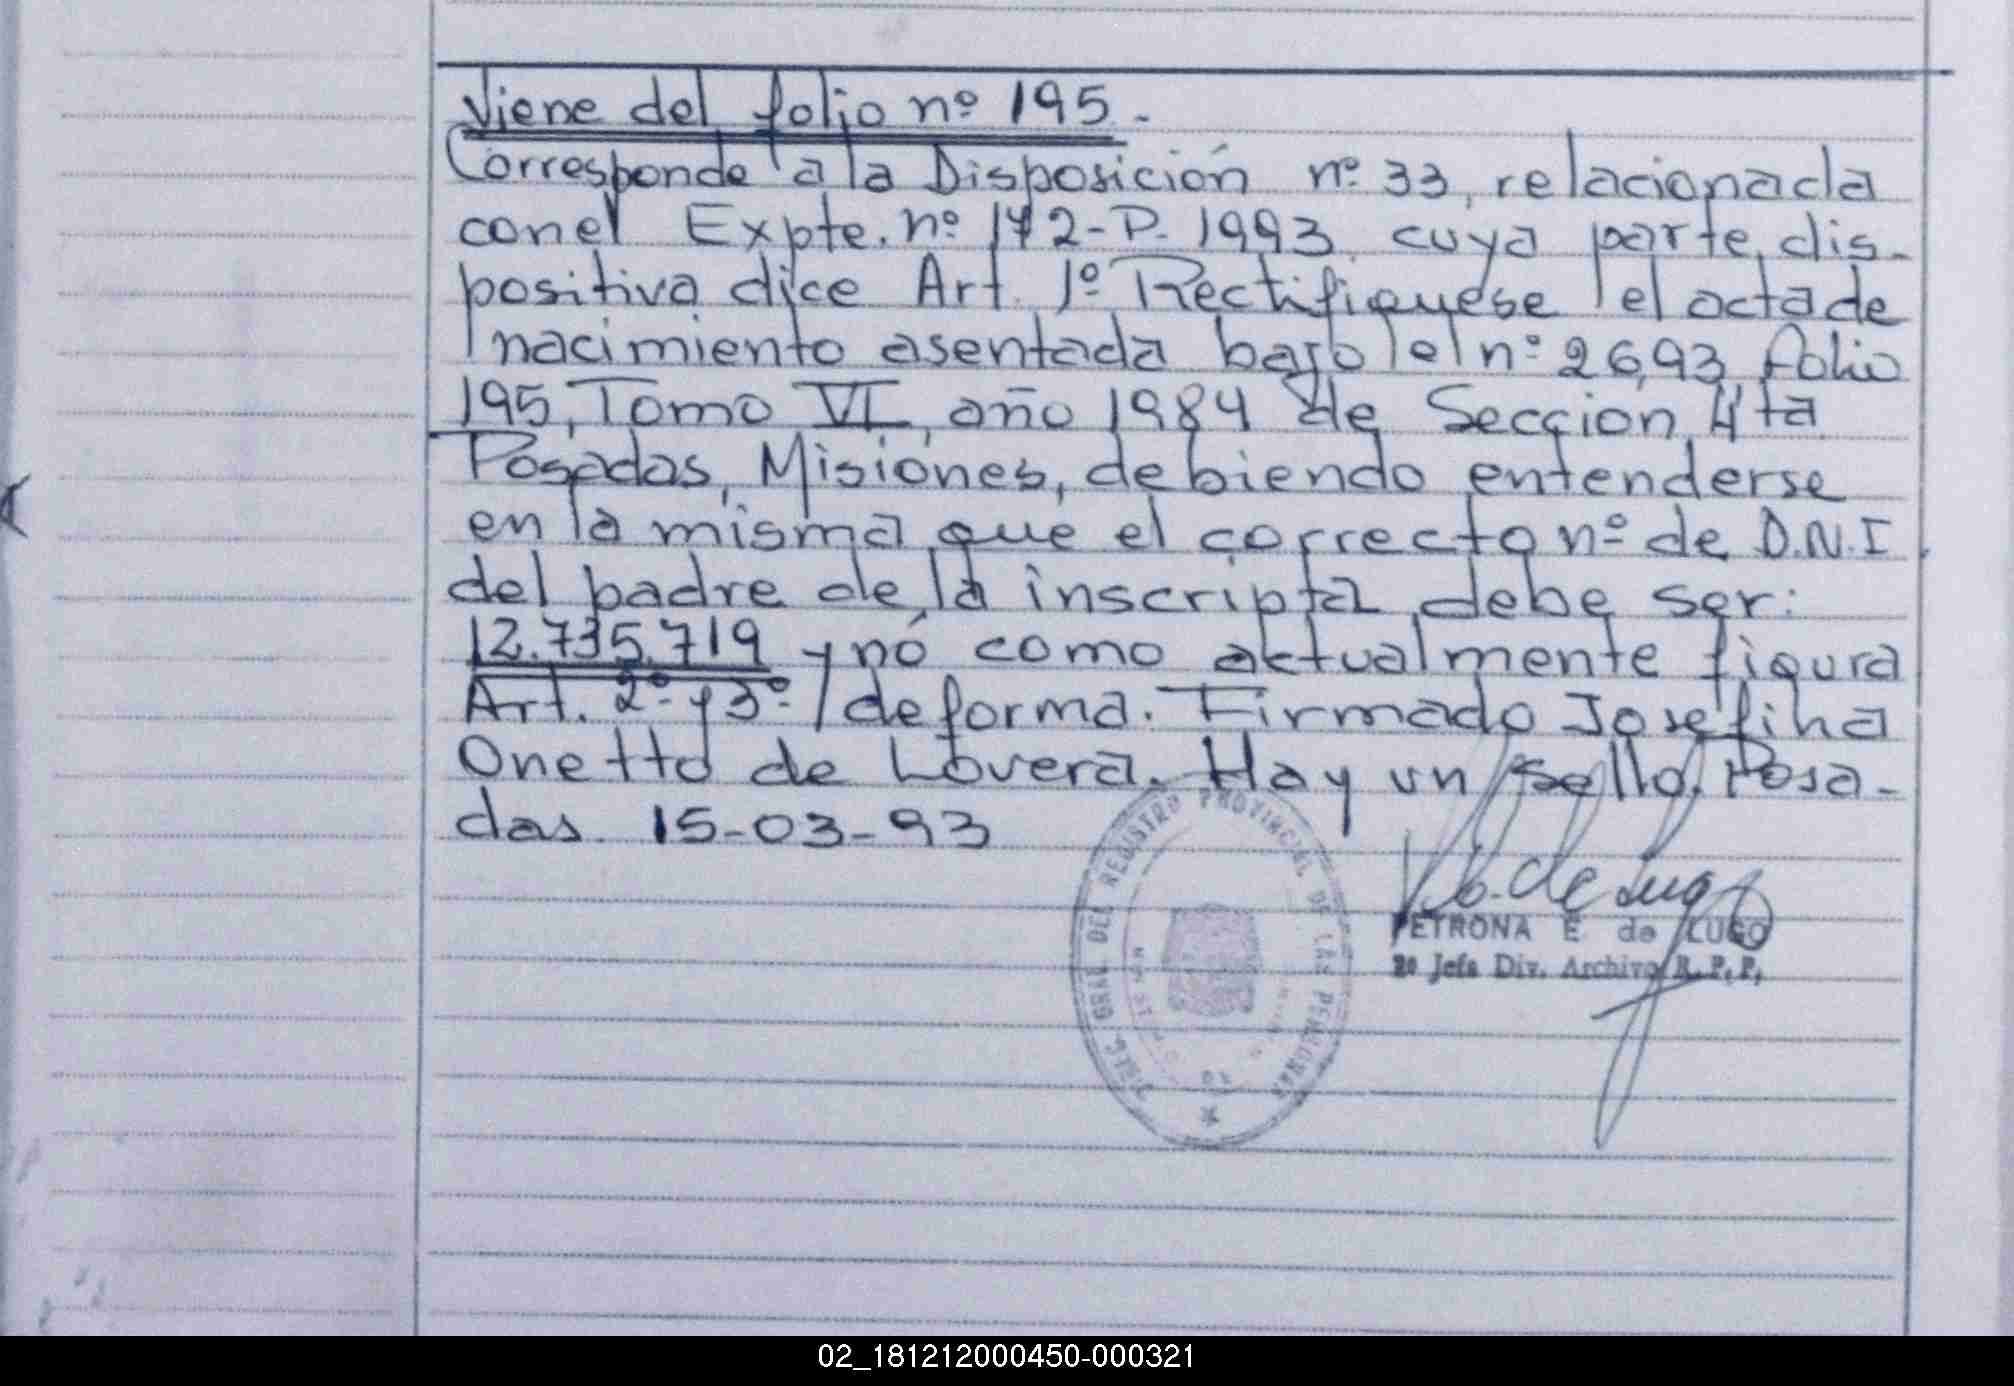 Viene del folio nº 195.-
Corresponde a la Disposición nº 33, relacionada
con el Expte. nº 172-P-1993 cuya parte dis-
positiva dice Art. 1º Rectifiquese el acta de
nacimiento asentada bajo el nº 2693, folio
195, Tomo VI, año 1984 de Seccion 4ta
Posadas, Misiones, debiendo entenderse
en la misma que el correcto nº de D.N.I.
del padre de la inscripta debe ser:
12.735.719 y nó como aktualmente figura
Art. 2º y 3º / de forma. Firmado Josefina
Onetto de Lovera. Hay un sello. Posa-
das 15-03-93
DIREC. GRAL. DEL REGISTRO PROVINCIAL DE LAS PERSONAS
PETRONA E de LUGO
2º Jefa Div. Archivo R.P.P.
02_181212000450-000321